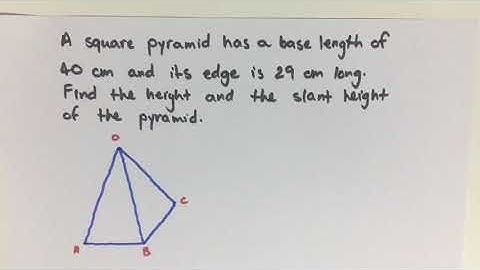 A square pyramid has a base length of
40 cm and its edge is 29 cm long.
Find the height and the slant height
of the pyramid.
O
C
A B